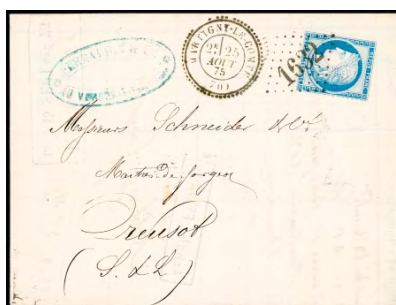 MARTIGNY-LE-COMTE
2E 25
AOUT
75
(70)
1632
Messieurs Schneider & Cie
Maîtres de forges
Creusot
(S. & L)